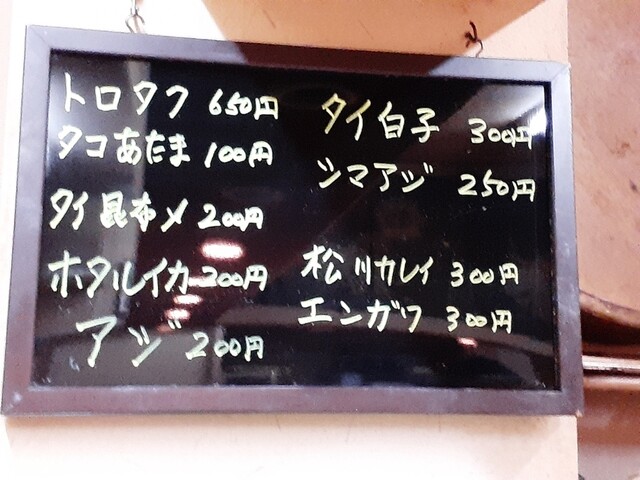 トロタク 650円
タコあたま 100円
タイ昆布〆 200円
ホタルイカ 200円
アジ 200円
タイ白子 300円
シマアジ 250円
松川カレイ 300円
エンガワ 300円